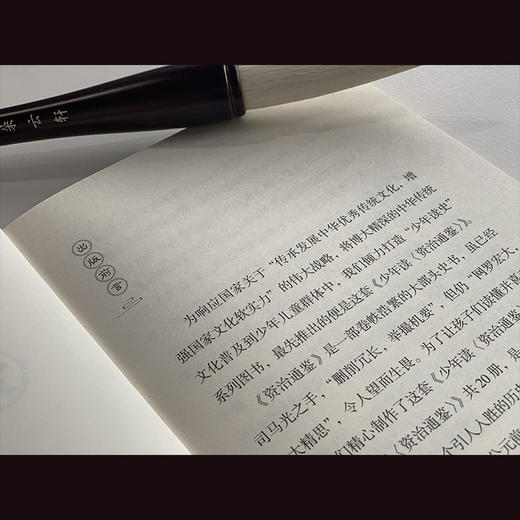 朵云轩
出版前言
为响应国家关于“传承发展中华优秀传统文化，增
强国家文化软实力”的伟大战略，将博大精深的中华传统
文化普及到少年儿童群体中，我们倾力打造“少年读史”
系列图书，最先推出的便是这套《少年读〈资治通鉴〉》。
《资治通鉴》是一部卷帙浩繁的大部头史书，虽已经
司马光之手，“删削冗长，举撮机要”，但仍“网罗宏大，
大精思”，令人望而生畏。为了让孩子们读懂并喜
《资治通鉴》
们精心制作了这套《少年读〈资治通鉴〉
共20册，是
个引人入胜的历史
公元前